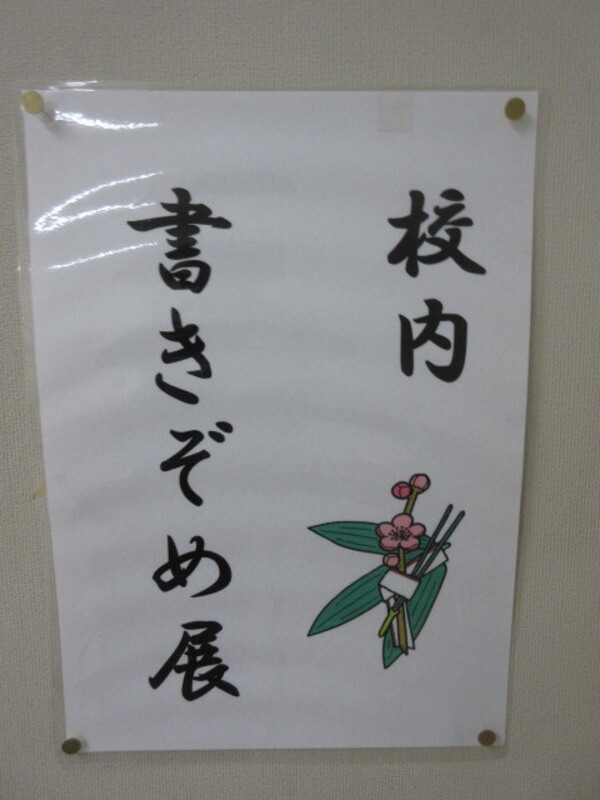 校内
書きぞめ展